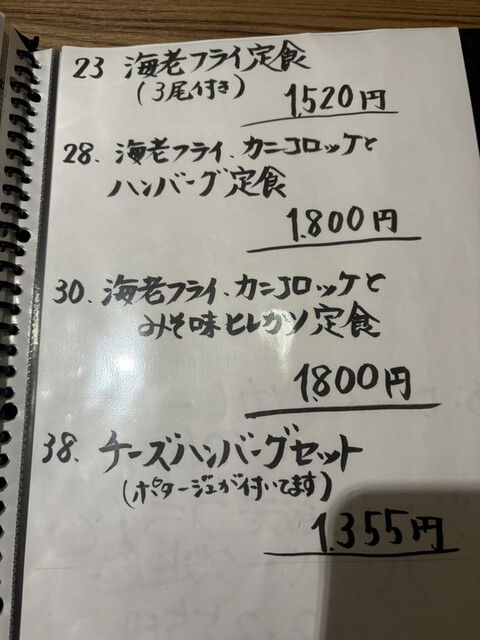 23 海老フライ定食
(3尾付き) 1,520円
28. 海老フライ、カニコロッケと
ハンバーグ定食
1,800円
30. 海老フライ、カニコロッケと
みそ味ヒレカツ定食
1,800円
38. チーズハンバーグセット
(ポタージュが付いてます)
1,355円